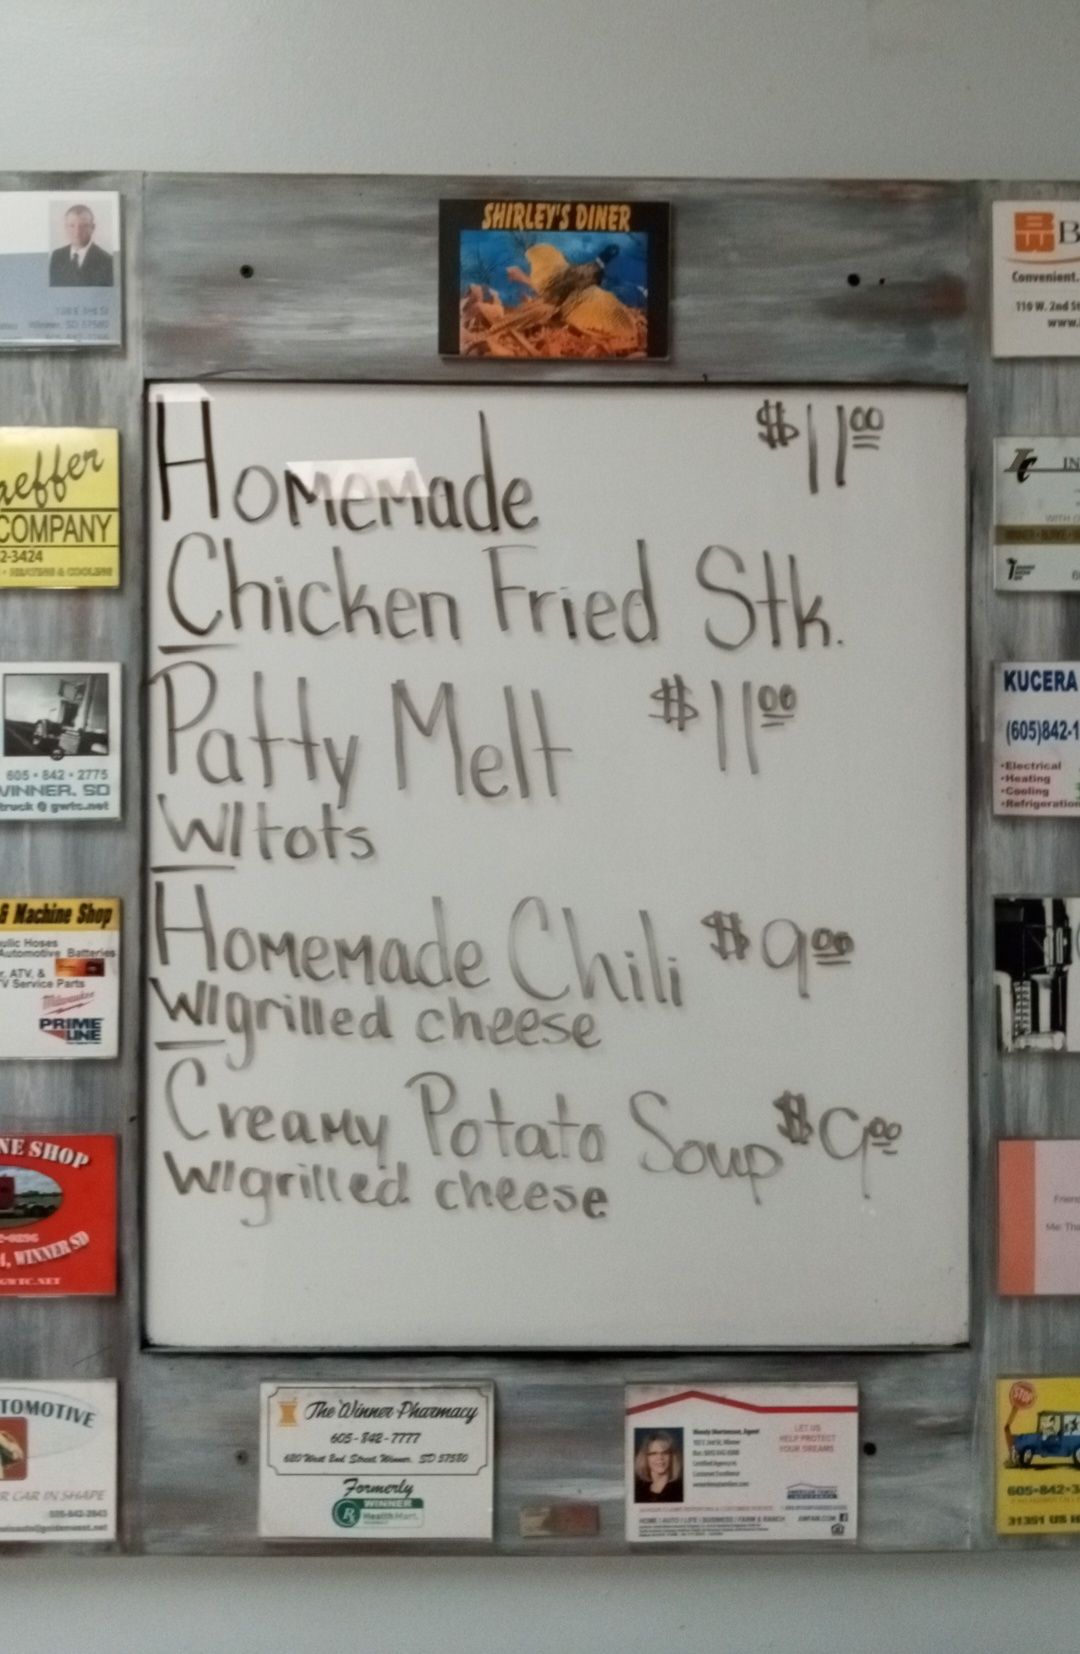 SHIRLEY'S DINER
Homemade $11.00
Chicken Fried Stk.
Patty Melt $11.00
W/tots
Homemade Chili $9.00
W/grilled cheese
Creamy Potato Soup $9.00
W/grilled cheese
COMPANY
605 • 842 • 2775
WINNER, SD
truck @ gwtc.net
& Machine Shop
Hoses
Automotive Batteries
ATV, &
Service Parts
Milwaukee
PRIME
LINE
SHOP
WINNER SD
GWTC.NET
CAR IN SHAPE
The Winner Pharmacy
605-842-7777
620 West 2nd Street, Winner, SD 57580
Formerly
WINNER
HealthMart
LET US
HELP PROTECT
YOUR DREAMS
HOME | AUTO | LIFE | BUSINESS | FARM & RANCH
AMFAM.COM
Convenient.
110 W. 2nd St
www.
KUCERA
(605)842-1
•Electrical
•Heating
•Cooling
•Refrigeration
STOP
605-842-3
31351 US H